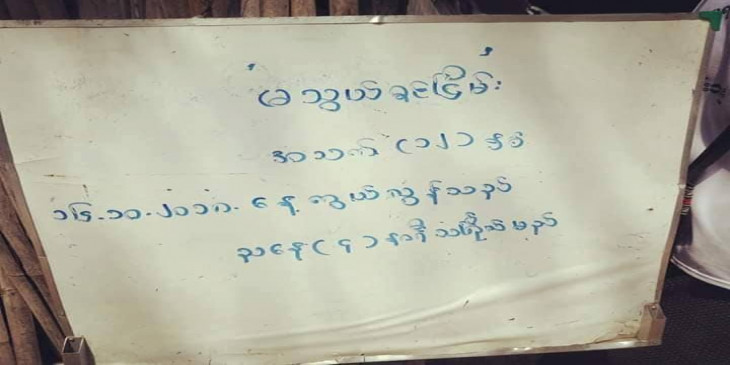 " မသွယ်ခင်ငြိမ်း "
အသက် (၁၂) နှစ်
၁၆.၁၁.၂၀၁၈. နေ့ ကွယ်လွန်သည်
ညနေ (၄) နာရီ သင်္ဂြိုဟ်မည်